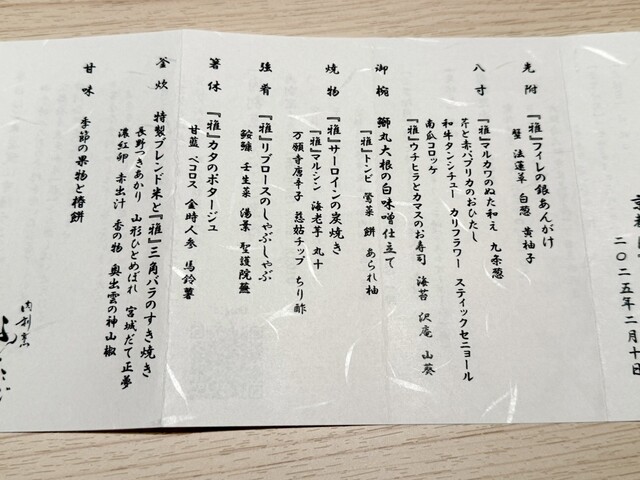 二〇二五年二月十日
先附
『雅』フィレの銀あんがけ
蟹 法蓮草 白葱 黄柚子
八寸
『雅』マルカワのぬた和え 九条葱
芹と赤パプリカのおひたし
和牛タンシチュー カリフラワー スティックセニョール
南瓜コロッケ
『雅』ウチヒラとカマスのお寿司 海苔 沢庵 山葵
御椀
鰤丸大根の白味噌仕立て
『雅』トンビ 鶯菜 餅 あられ柚
焼物
『雅』サーロインの炭焼き
『雅』マルシン 海老芋 丸十
万願寺唐辛子 慈姑チップ ちり酢
強肴
『雅』リブロースのしゃぶしゃぶ
鮟鱇 壬生菜 湯葉 聖護院蕪
箸休
『雅』カタのポタージュ
甘藍 ペコロス 金時人参 馬鈴薯
釜炊
特製ブレンド米と『雅』三角バラのすき焼き
長野つきあかり 山形ひとめぼれ 宮城だて正夢
濃紅卵 赤出汁 香の物 奥出雲の神山椒
甘味
季節の果物と椿餅